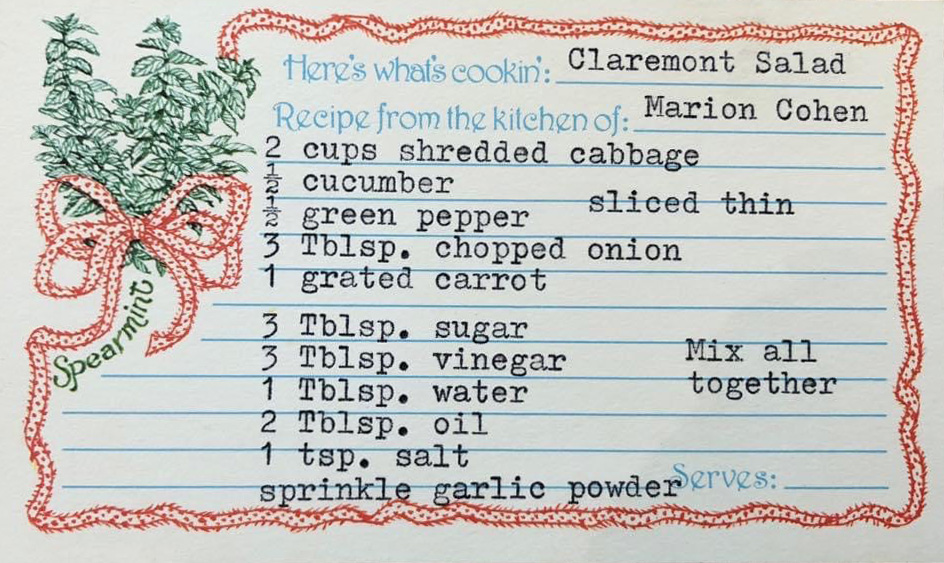 Here's what's cookin': Claremont Salad
Recipe from the kitchen of: Marion Cohen
2 cups shredded cabbage
½ cucumber
sliced thin
½ green pepper
3 Tblsp. chopped onion
1 grated carrot
3 Tblsp. sugar
3 Tblsp. vinegar
Mix all
together
1 Tblsp. water
2 Tblsp. oil
1 tsp. salt
sprinkle garlic powder
Serves:
Spearmint